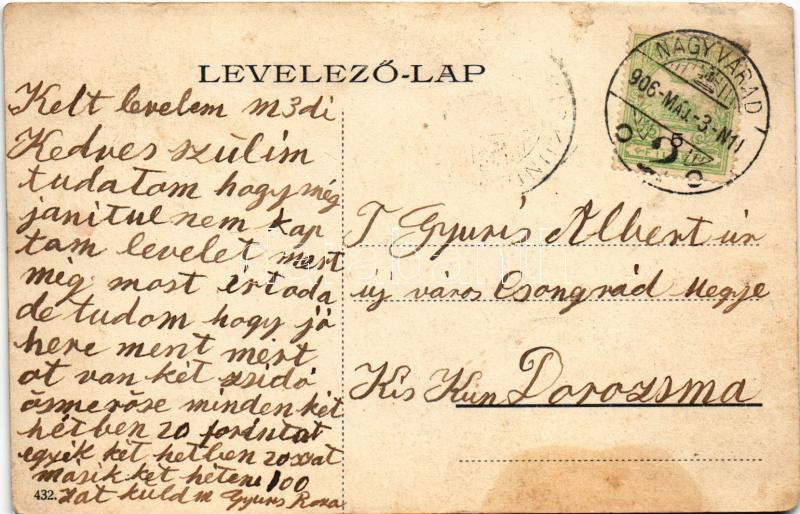 LEVELEZŐ-LAP
NAGYVÁRAD
906-MÁJ.-3-N11
Kelt levelem m3di
Kedves szülim
tudatom hogy még
janitul nem kap
tam levelet mert
még most irtoda
de tudom hogy jó
here ment mert
ot van két zsidó
ösmeröse minden két
hétben 20 forintat
egyik két hetben 20
másik két hétene 100
zat küldm Gyuris Roza
T Gyuris Albert úr
uj város Csongrád Megje
Kis Kun Dorozsma
432.